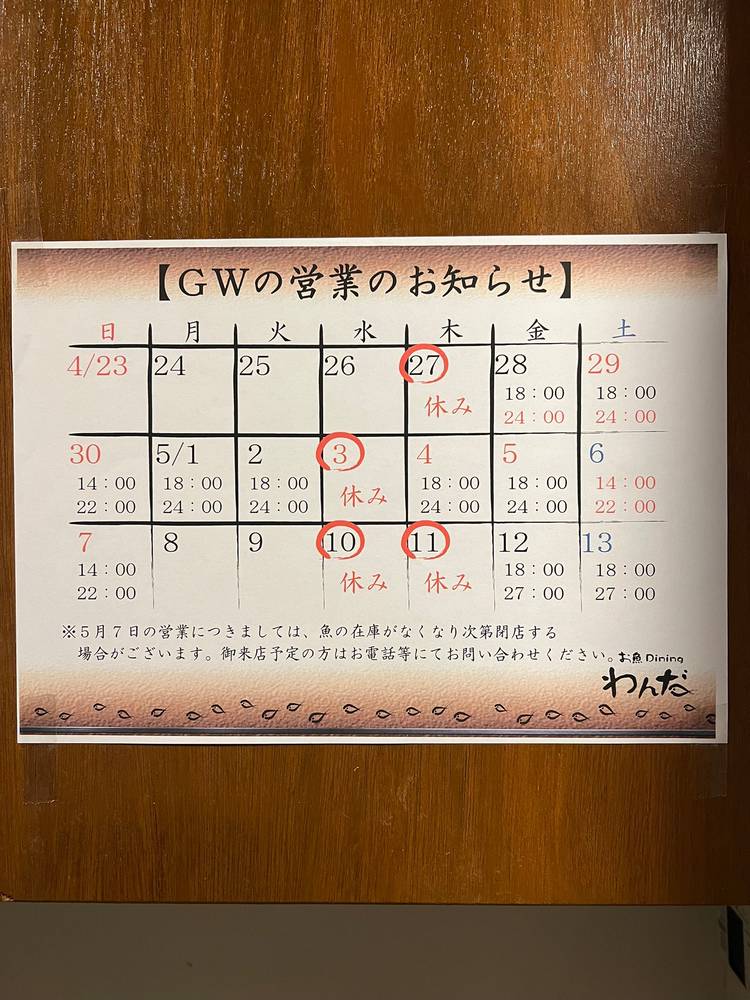 【GWの営業のお知らせ】
日 月 火 水 木 金 土
4/23 24 25 26 27 28 29
休み 18：00 18：00
24：00 24：00
30 5/1 2 3 4 5 6
14：00 18：00 18：00 休み 18：00 18：00 14：00
22：00 24：00 24：00 24：00 24：00 22：00
7 8 9 10 11 12 13
14：00 休み 休み 18：00 18：00
22：00 27：00 27：00
※５月７日の営業につきましては、魚の在庫がなくなり次第閉店する
場合がございます。御来店予定の方はお電話等にてお問い合わせください。
お魚Dining
わんだ